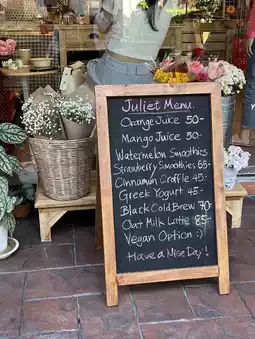 Juliet Menu.
Orange Juice 50.-
Mango Juice 50.-
Watermelon Smoothies
Strawberry Smoothies 65.-
Cinnamon Croffle 45.-
Greek Yogurt 45.-
Black Cold Brew 70.-
Oat Milk Latte 85.-
Vegan Option :)
Have a Nice Day!